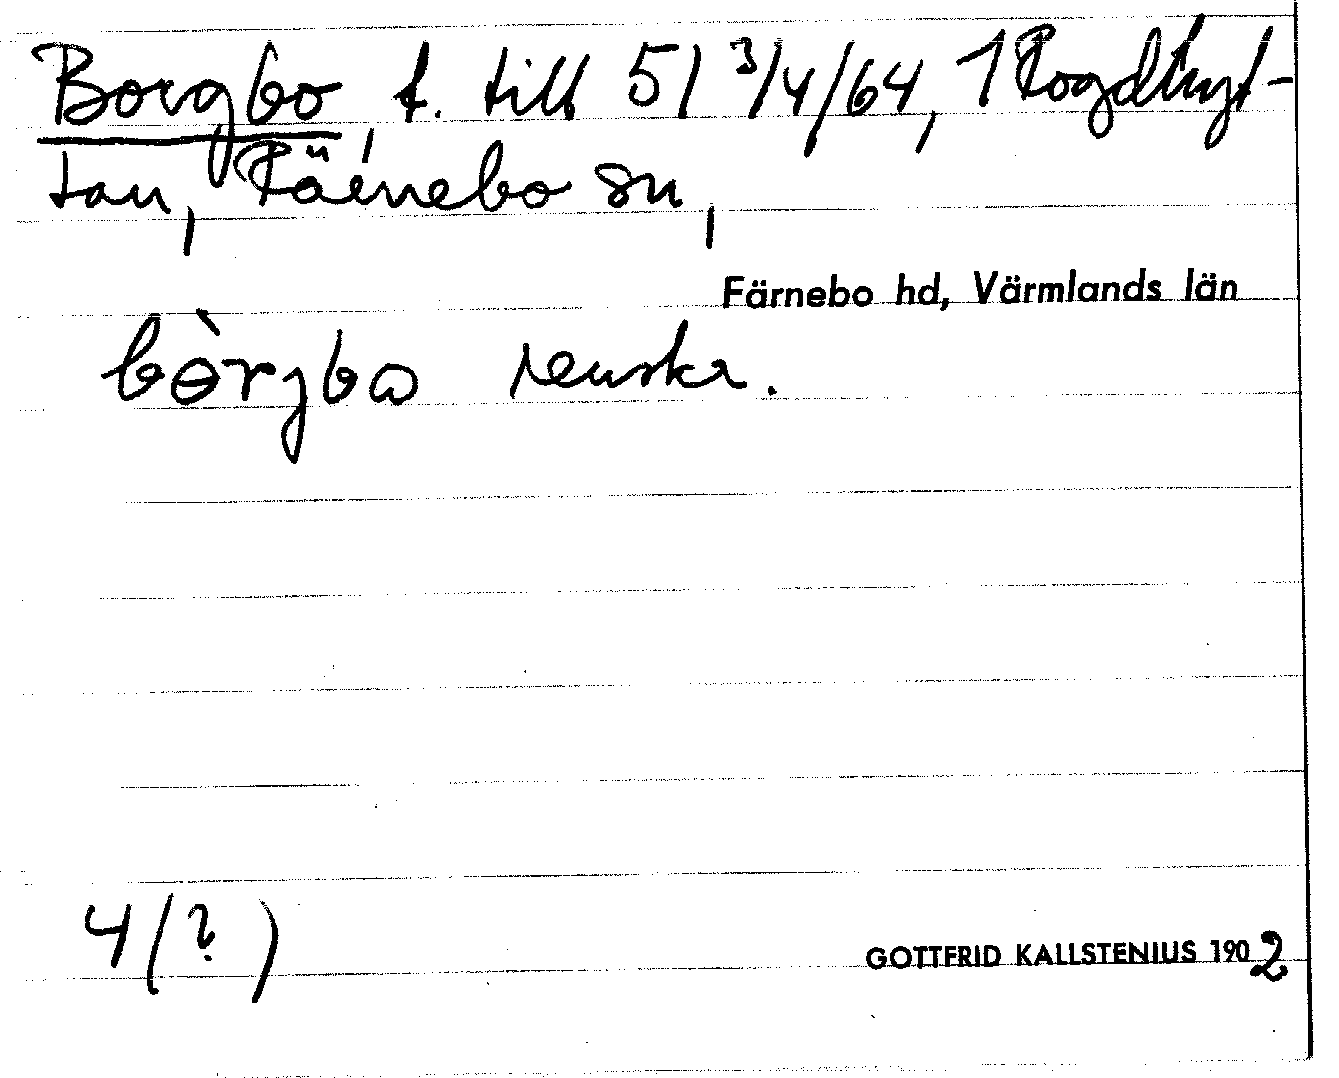 Borgbo, t. till 51 3/4/64, 1 Rogdhyt-
tan, Färnebo sn,
Färnebo hd, Värmlands län
bɵ̀rjba renskr.
4(?)
GOTTFRID KALLSTENIUS 1902